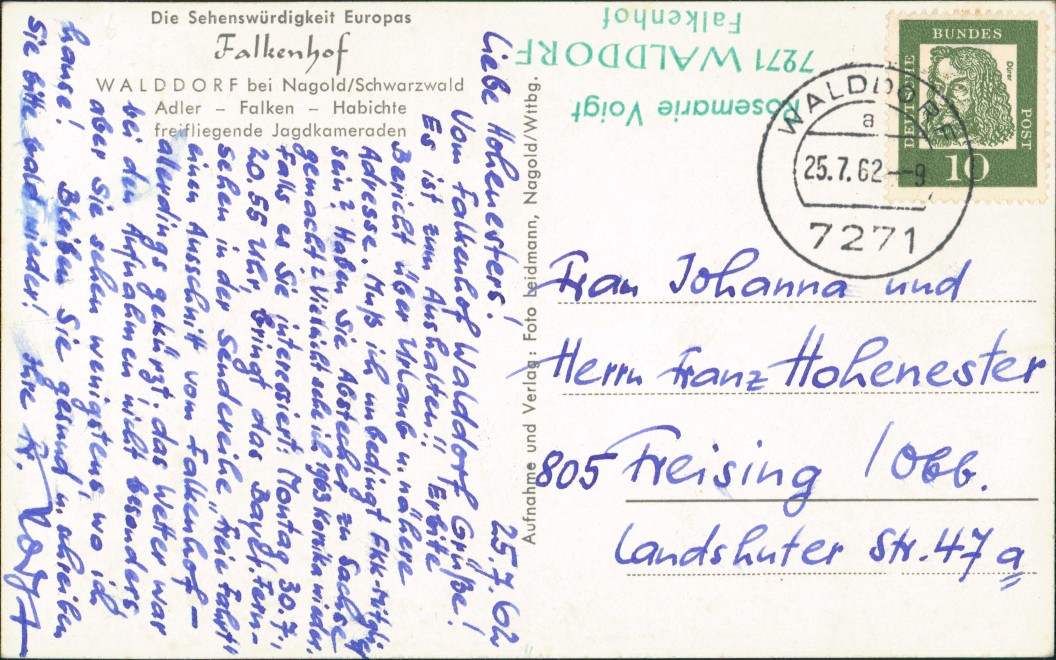 Die Sehenswürdigkeit Europas
Falkenhof
WALDDORF bei Nagold/Schwarzwald
Adler – Falken – Habichte
freifliegende Jagdkameraden
25.7.62
Liebe Hohenesters!
Vom Falkenhof Walddorf Grüße!
Es ist zum Aushalten!! Erbitte
Bericht über Urlaub u. nähere
Adresse. Muß ich unbedingt FKK-Mitgl.
sein? Haben Sie Abstecher zu Sachse
gemacht? Vielleicht seh ich 1963 Korsika wieder.
Falls es Sie interessiert: Montag 30.7.,
20.55 Uhr, bringt das Bayr. Fern-
sehen in der Sendereihe "Freie Fahrt"
einen Ausschnitt vom Falkenhof –
allerdings gekürzt. das Wetter war
bei den Aufnahmen nicht besonders
aber Sie sehen wenigstens wo ich
hause! Bleiben Sie gesund u. schreiben
Sie bitte bald wieder! Ihre R. Voigt
Aufnahme und Verlag: Foto Leidmann, Nagold/Wttbg.
Rosemarie Voigt
7271 WALDDORF
Falkenhof
WALDDORF
a
25.7.62--9
7271
DEUTSCHE
BUNDES
POST
Dürer
10
Frau Johanna und
Herrn Franz Hohenester
805 Freising /Obb.
Landshuter Str. 47a